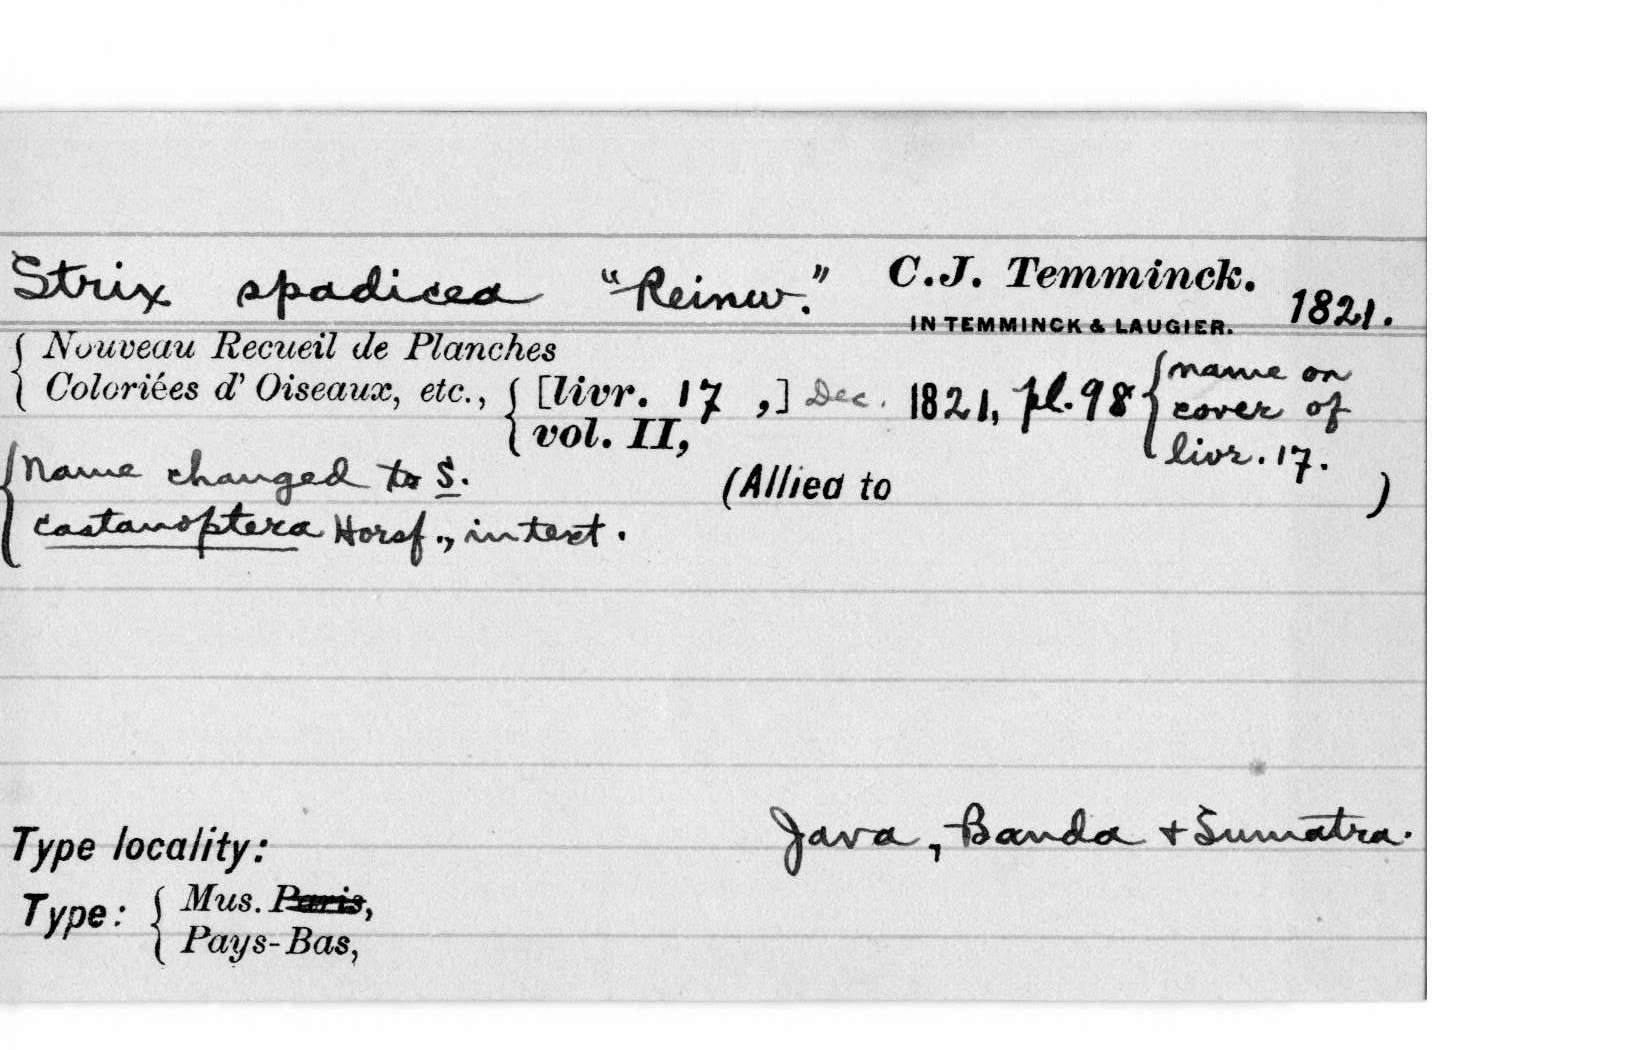 Strix spadicea "Reinw." C.J. Temminck. 1821.
IN TEMMINCK & LAUGIER.
{ Nouveau Recueil de Planches
Coloriées d' Oiseaux, etc., { [livr. 17 ,] Dec. 1821, pl. 98 { name on
cover of
livr. 17.
vol. II,
{ Name changed to S. (Allied to )
castanoptera Horsf., in text.
Type locality: Java, Banda + Sumatra.
Type: { Mus. Paris,
Pays-Bas,